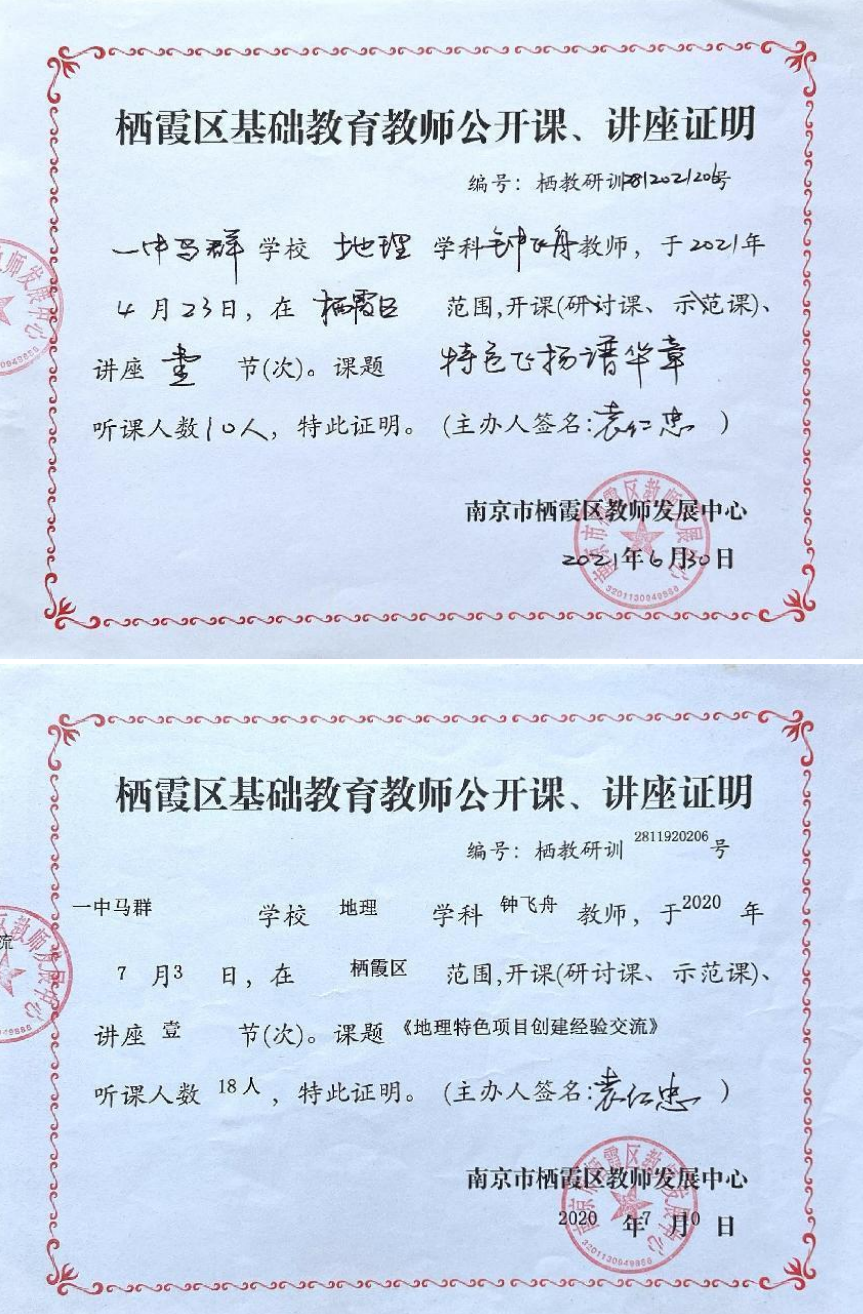 栖霞区基础教育教师公开课、讲座证明
编号：栖教研训2812021206号
一中马群 学校 地理 学科 钟飞舟 教师，于2021年
4月23日，在 栖霞区 范围,开课(研讨课、示范课)、
讲座 壹 节(次)。课题 特色飞扬谱华章
听课人数10人，特此证明。(主办人签名:袁仁忠 )
南京市栖霞区教师发展中心
2021年6月30日
南京市栖霞区教师发展中心
栖霞区基础教育教师公开课、讲座证明
编号：栖教研训 2811920206号
一中马群 学校 地理 学科 钟飞舟 教师，于2020 年
7 月3 日，在 栖霞区 范围,开课(研讨课、示范课)、
讲座 壹 节(次)。课题《地理特色项目创建经验交流》
听课人数 18人，特此证明。(主办人签名:袁仁忠 )
南京市栖霞区教师发展中心
2020 年7 月10 日
南京市栖霞区教师发展中心